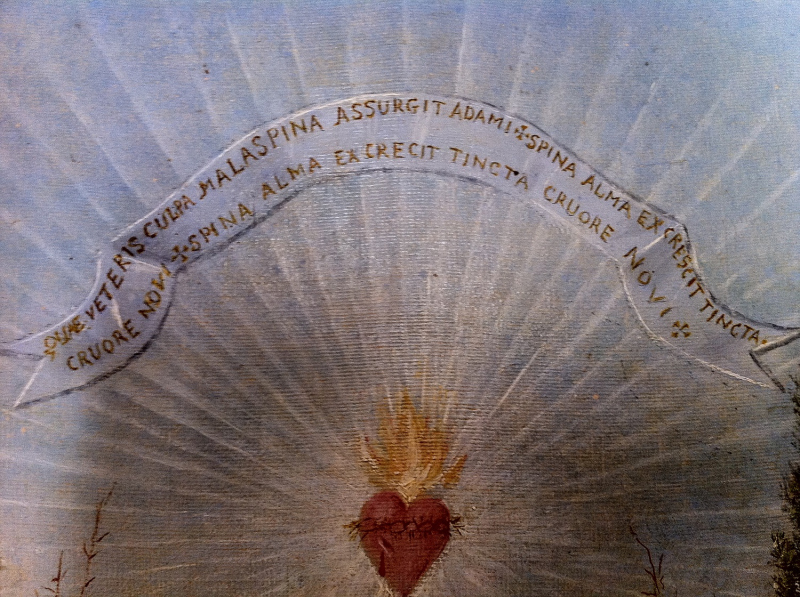 QUAE VETERIS CULPA MALASPINA ASSURGIT ADAMI ✣ SPINA ALMA EX CRESCIT TINCTA
CRUORE NOVI ✣ SPINA ALMA EX CRECIT TINCTA CRUORE NOVI ✣